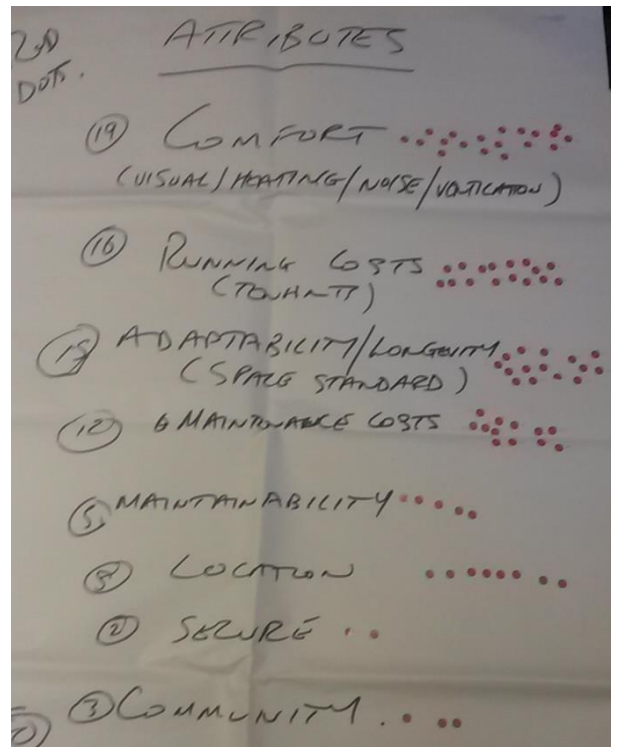 2ND ATTRIBUTES
DOTS.
19 COMFORT
(VISUAL/HEATING/NOISE/VENTILATION)
16 RUNNING COSTS
(TENANTS)
15 ADAPTABILITY/LONGEVITY
(SPACE STANDARD)
12 MAINTENANCE COSTS
5 MAINTAINABILITY
LOCATION
2 SECURE
3 COMMUNITY